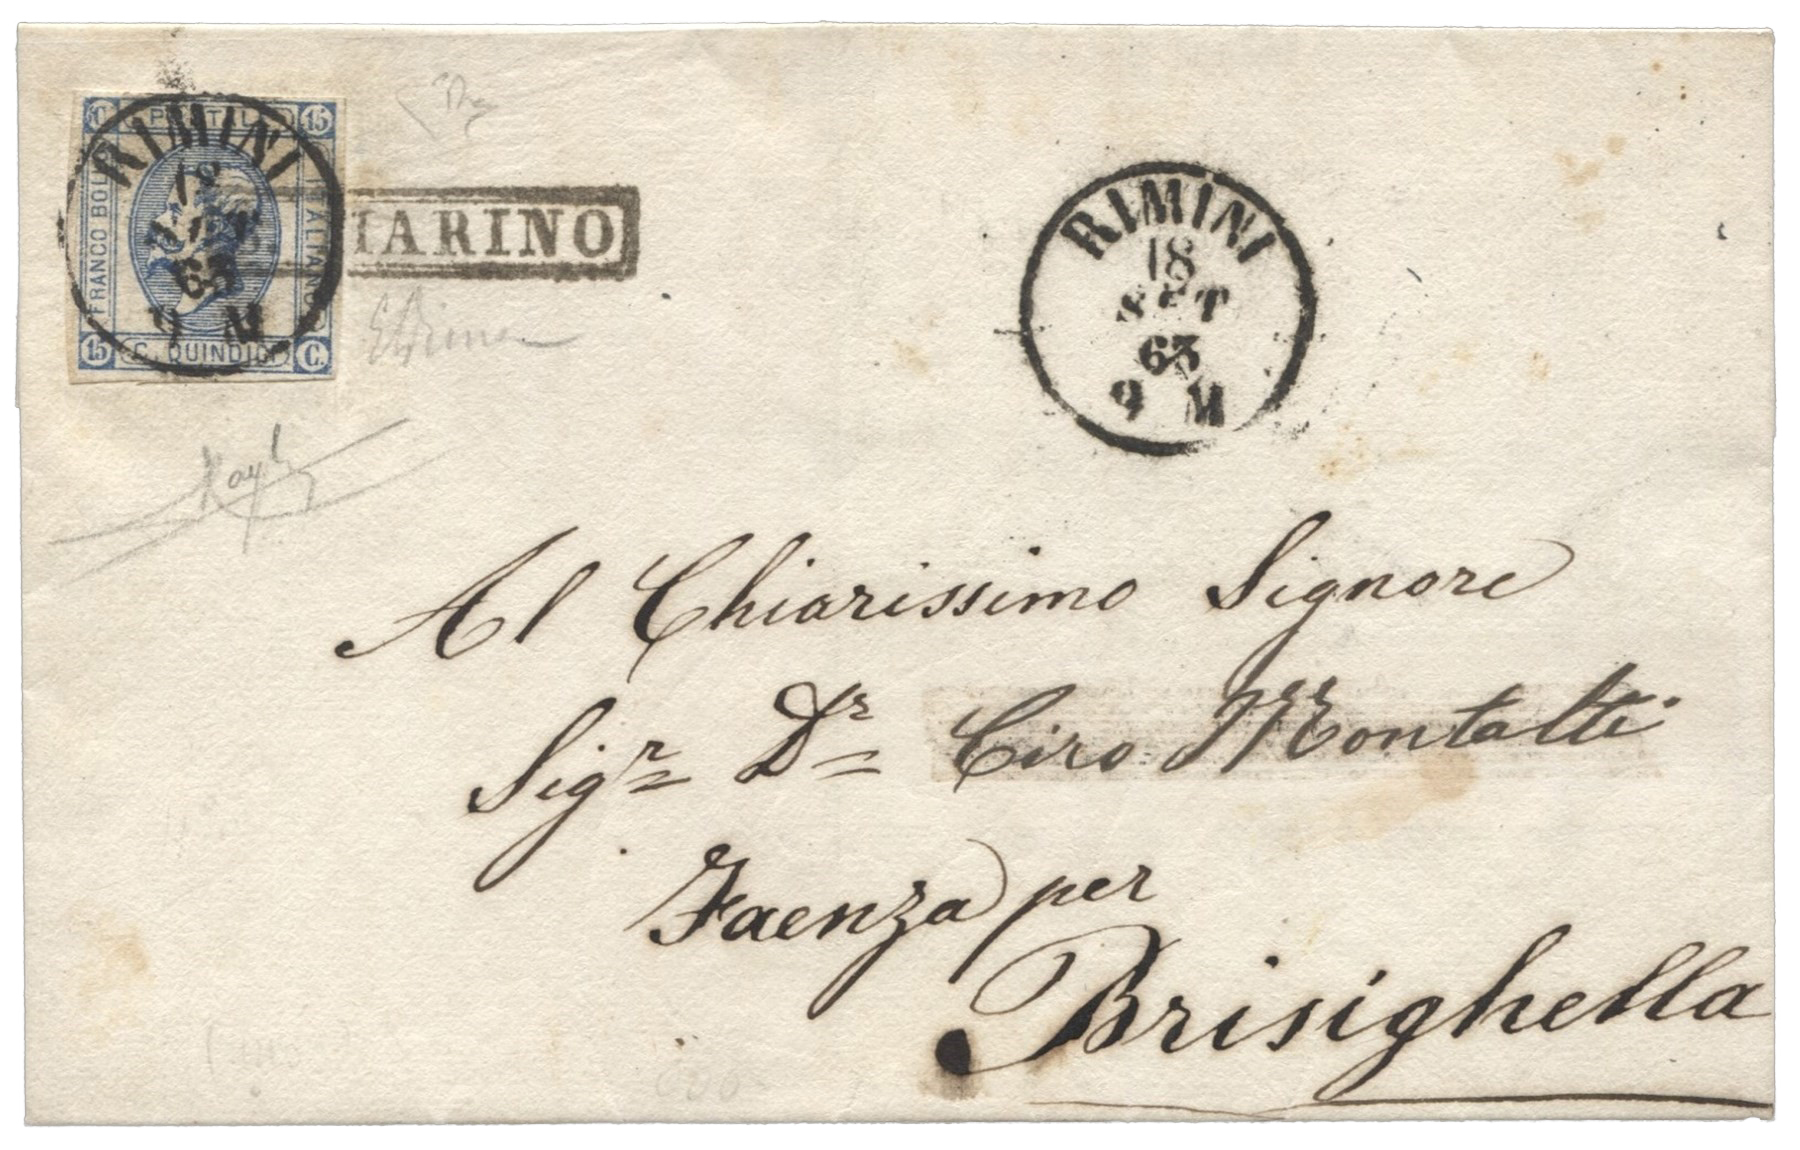 C. POSTALE 15
FRANCO BOLLO
ITALIANO
15 C. QUINDICI C.
RIMINI
18
SET
63
9 M
MARINO
RIMINI
18
SET
63
9 M
Al Chiarissimo Signore
Sigr Dr Ciro Montalti
Faenza per
Brisighella